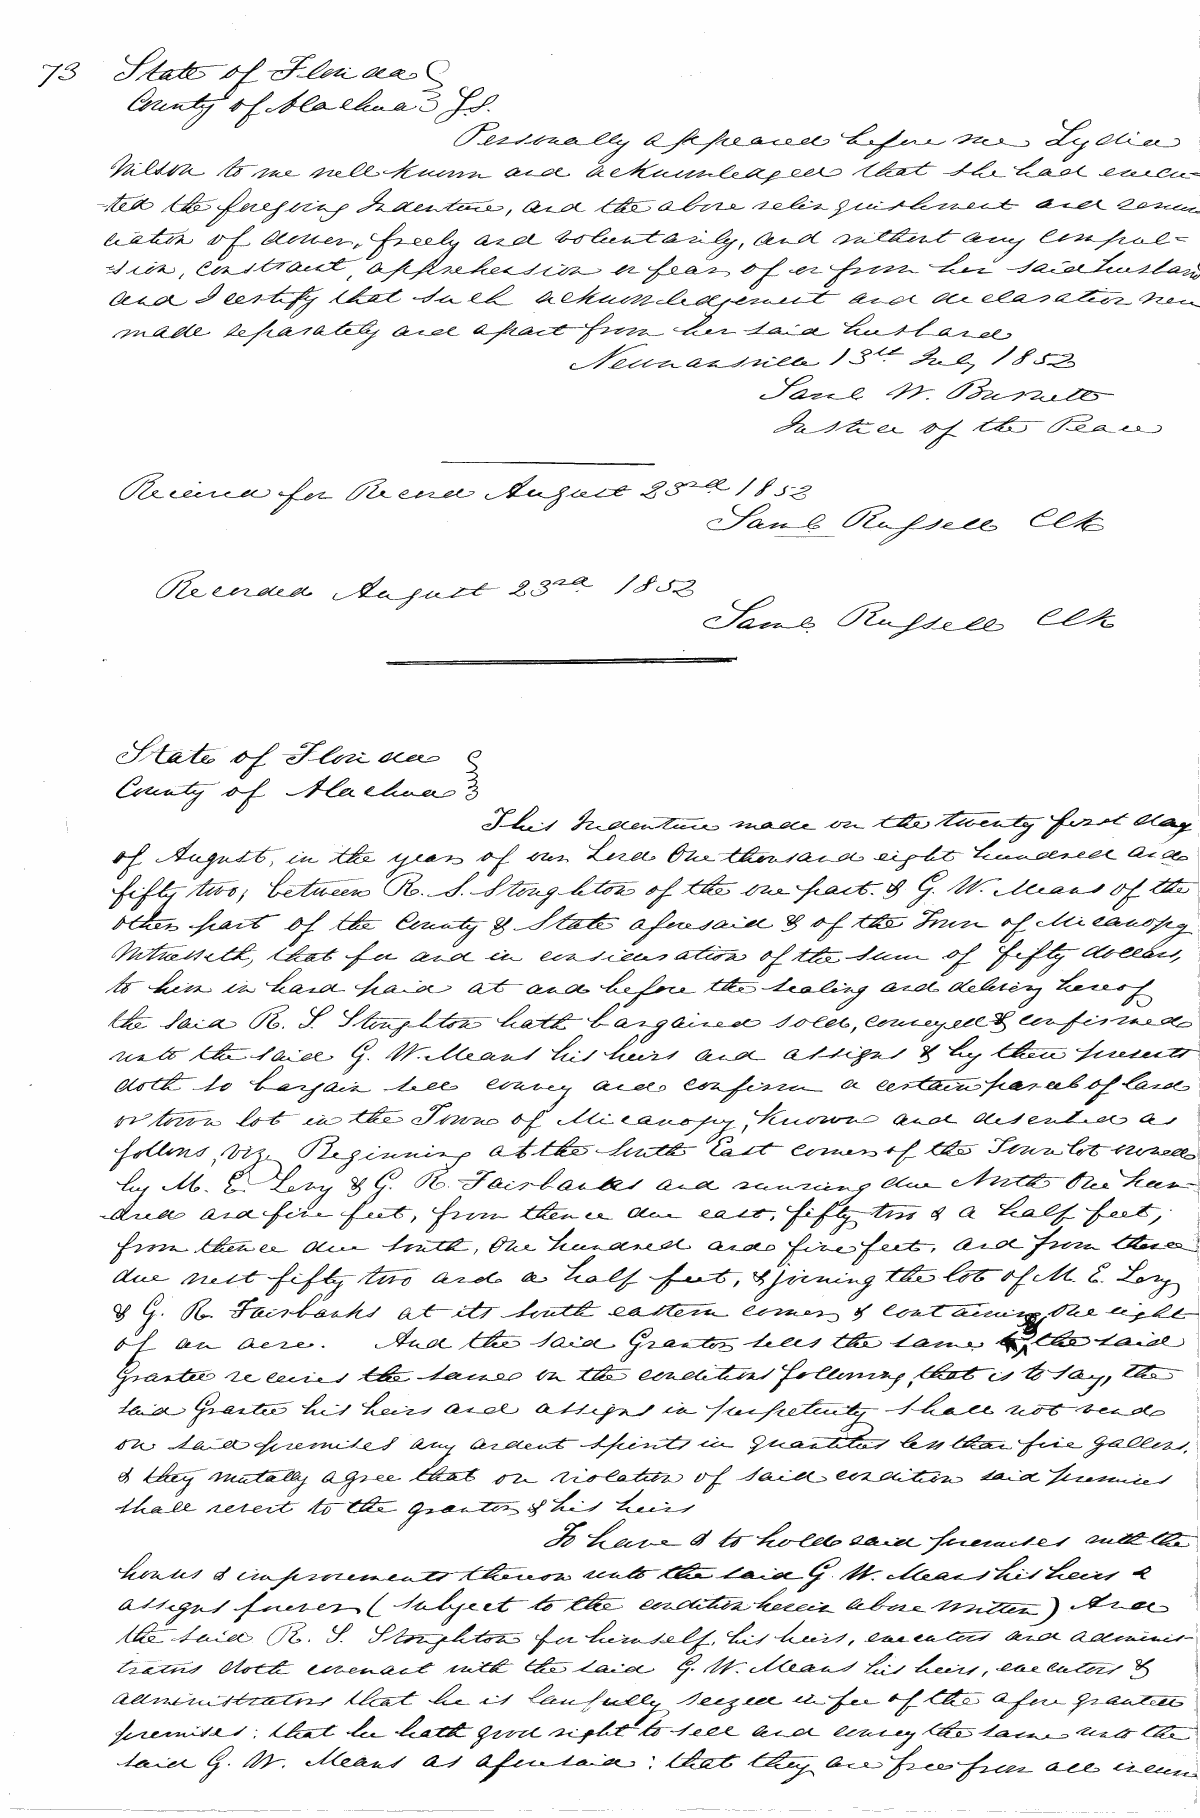 73 State of Florida
County of Alachua } S.S.
Personally appeared before me Lydia
Wilson to me well known and acknowledged that she had execu-
-ted the foregoing Indenture, and the above relinquishment and renun
ciation of dower, freely and voluntarily, and without any compul-
-sion, constraint, apprehension or fear of or from her said husband
and I certify that such acknowledgement and declaration were
made separately and apart from her said husband
Newnansville 13th July 1852
Saml W. Burnett
Justice of the Peace
Received for Record August 23rd 1852
Saml Russell Clk
Recorded August 23rd 1852
Saml Russell Clk
State of Florida
County of Alachua }
This Indenture made on the twenty first day
of August, in the year of our Lord One thousand eight hundred and
fifty two; between R. S. Stoughton of the one part. & G. W. Means of the
other part of the County & State aforesaid & of the Town of Micanopy
Witnesseth, that for and in consideration of the sum of fifty dollars,
to him in hand paid at and before the sealing and delivery hereof
the said R. S. Stoughton hath bargained sold, conveyed & confirmed
unto the said G. W. Means his heirs and assigns & by these presents
doth so bargain sell convey and confirm a certain parcel of land
or town lot in the Town of Micanopy, Known and described as
follows, viz. Beginning at the South East corner of the Town lot owned
by M. E. Levy & G. R. Fairbanks and running due North One hun-
-dred and five feet, from thence due east, fifty two & a half feet,
from thence due South, One hundred and five feet, and from thence
due west fifty two and a half feet, & joining the lot of M. E. Levy
& G. R. Fairbanks at its South eastern corner & containing One eight
of an acre. And the said Grantor sells the same & the said
Grantee receives the same on the conditions following, that is to say, the
said Grantee his heirs and assigns in perpetuity shall not vend
on said premises any ardent spirits in quantities less than five gallons,
& they mutally agree that on violation of said condition said premises
shall revert to the grantor & his heirs
To have & to hold said premises with the
houses & improvements thereon unto the said G. W. Means his heirs &
assigns forever (subject to the condition herein above written) And
the said R. S. Stoughton for himself, his heirs, executors and adminis-
trators doth covenant with the said G. W. Means his heirs, executors &
administrators that he is lawfully seized in fee of the afore granted
premises: that he hath good right to sell and convey the same unto the
said G. W. Means as aforesaid: that they are free from all incum